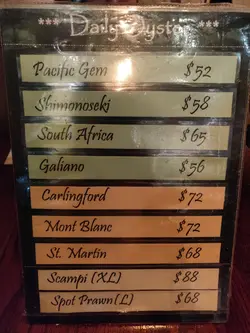 *** Daily Oyster ***
Pacific Gem $52
Shimonoseki $58
South Africa $65
Galiano $56
Carlingford $72
Mont Blanc $72
St. Martin $68
Scampi (XL) $88
Spot Prawn(L) $68